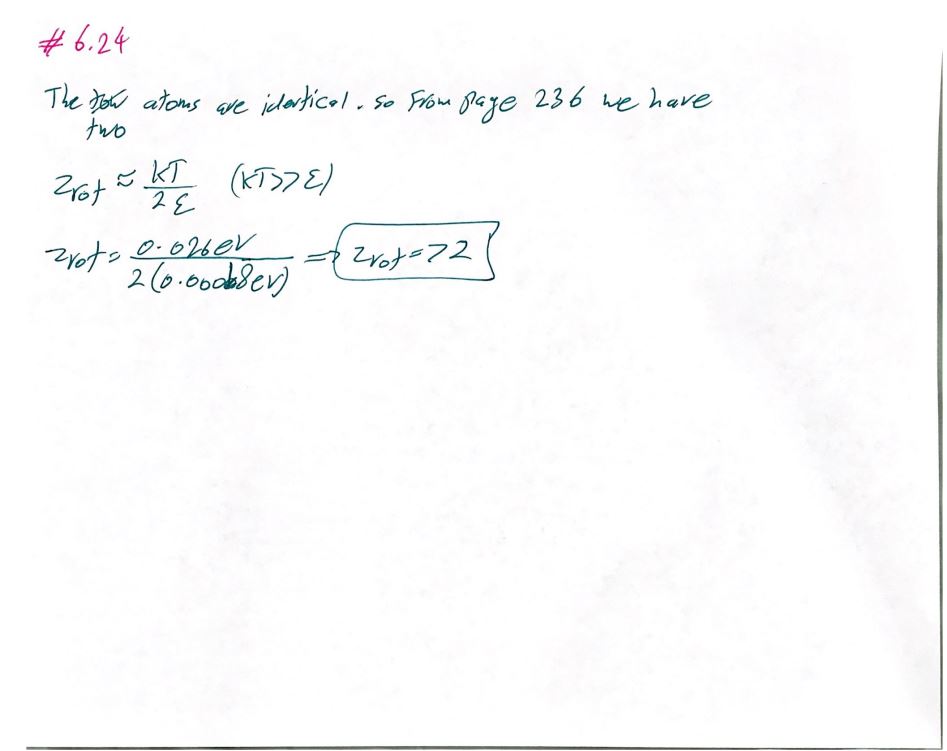 # 6.24
The two atoms are identical. so From page 236 we have
two
Zrot ≈ kT / 2ε (kT>>ε)
Zrot = 0.026eV / 2(0.00018eV) => Zrot = 72